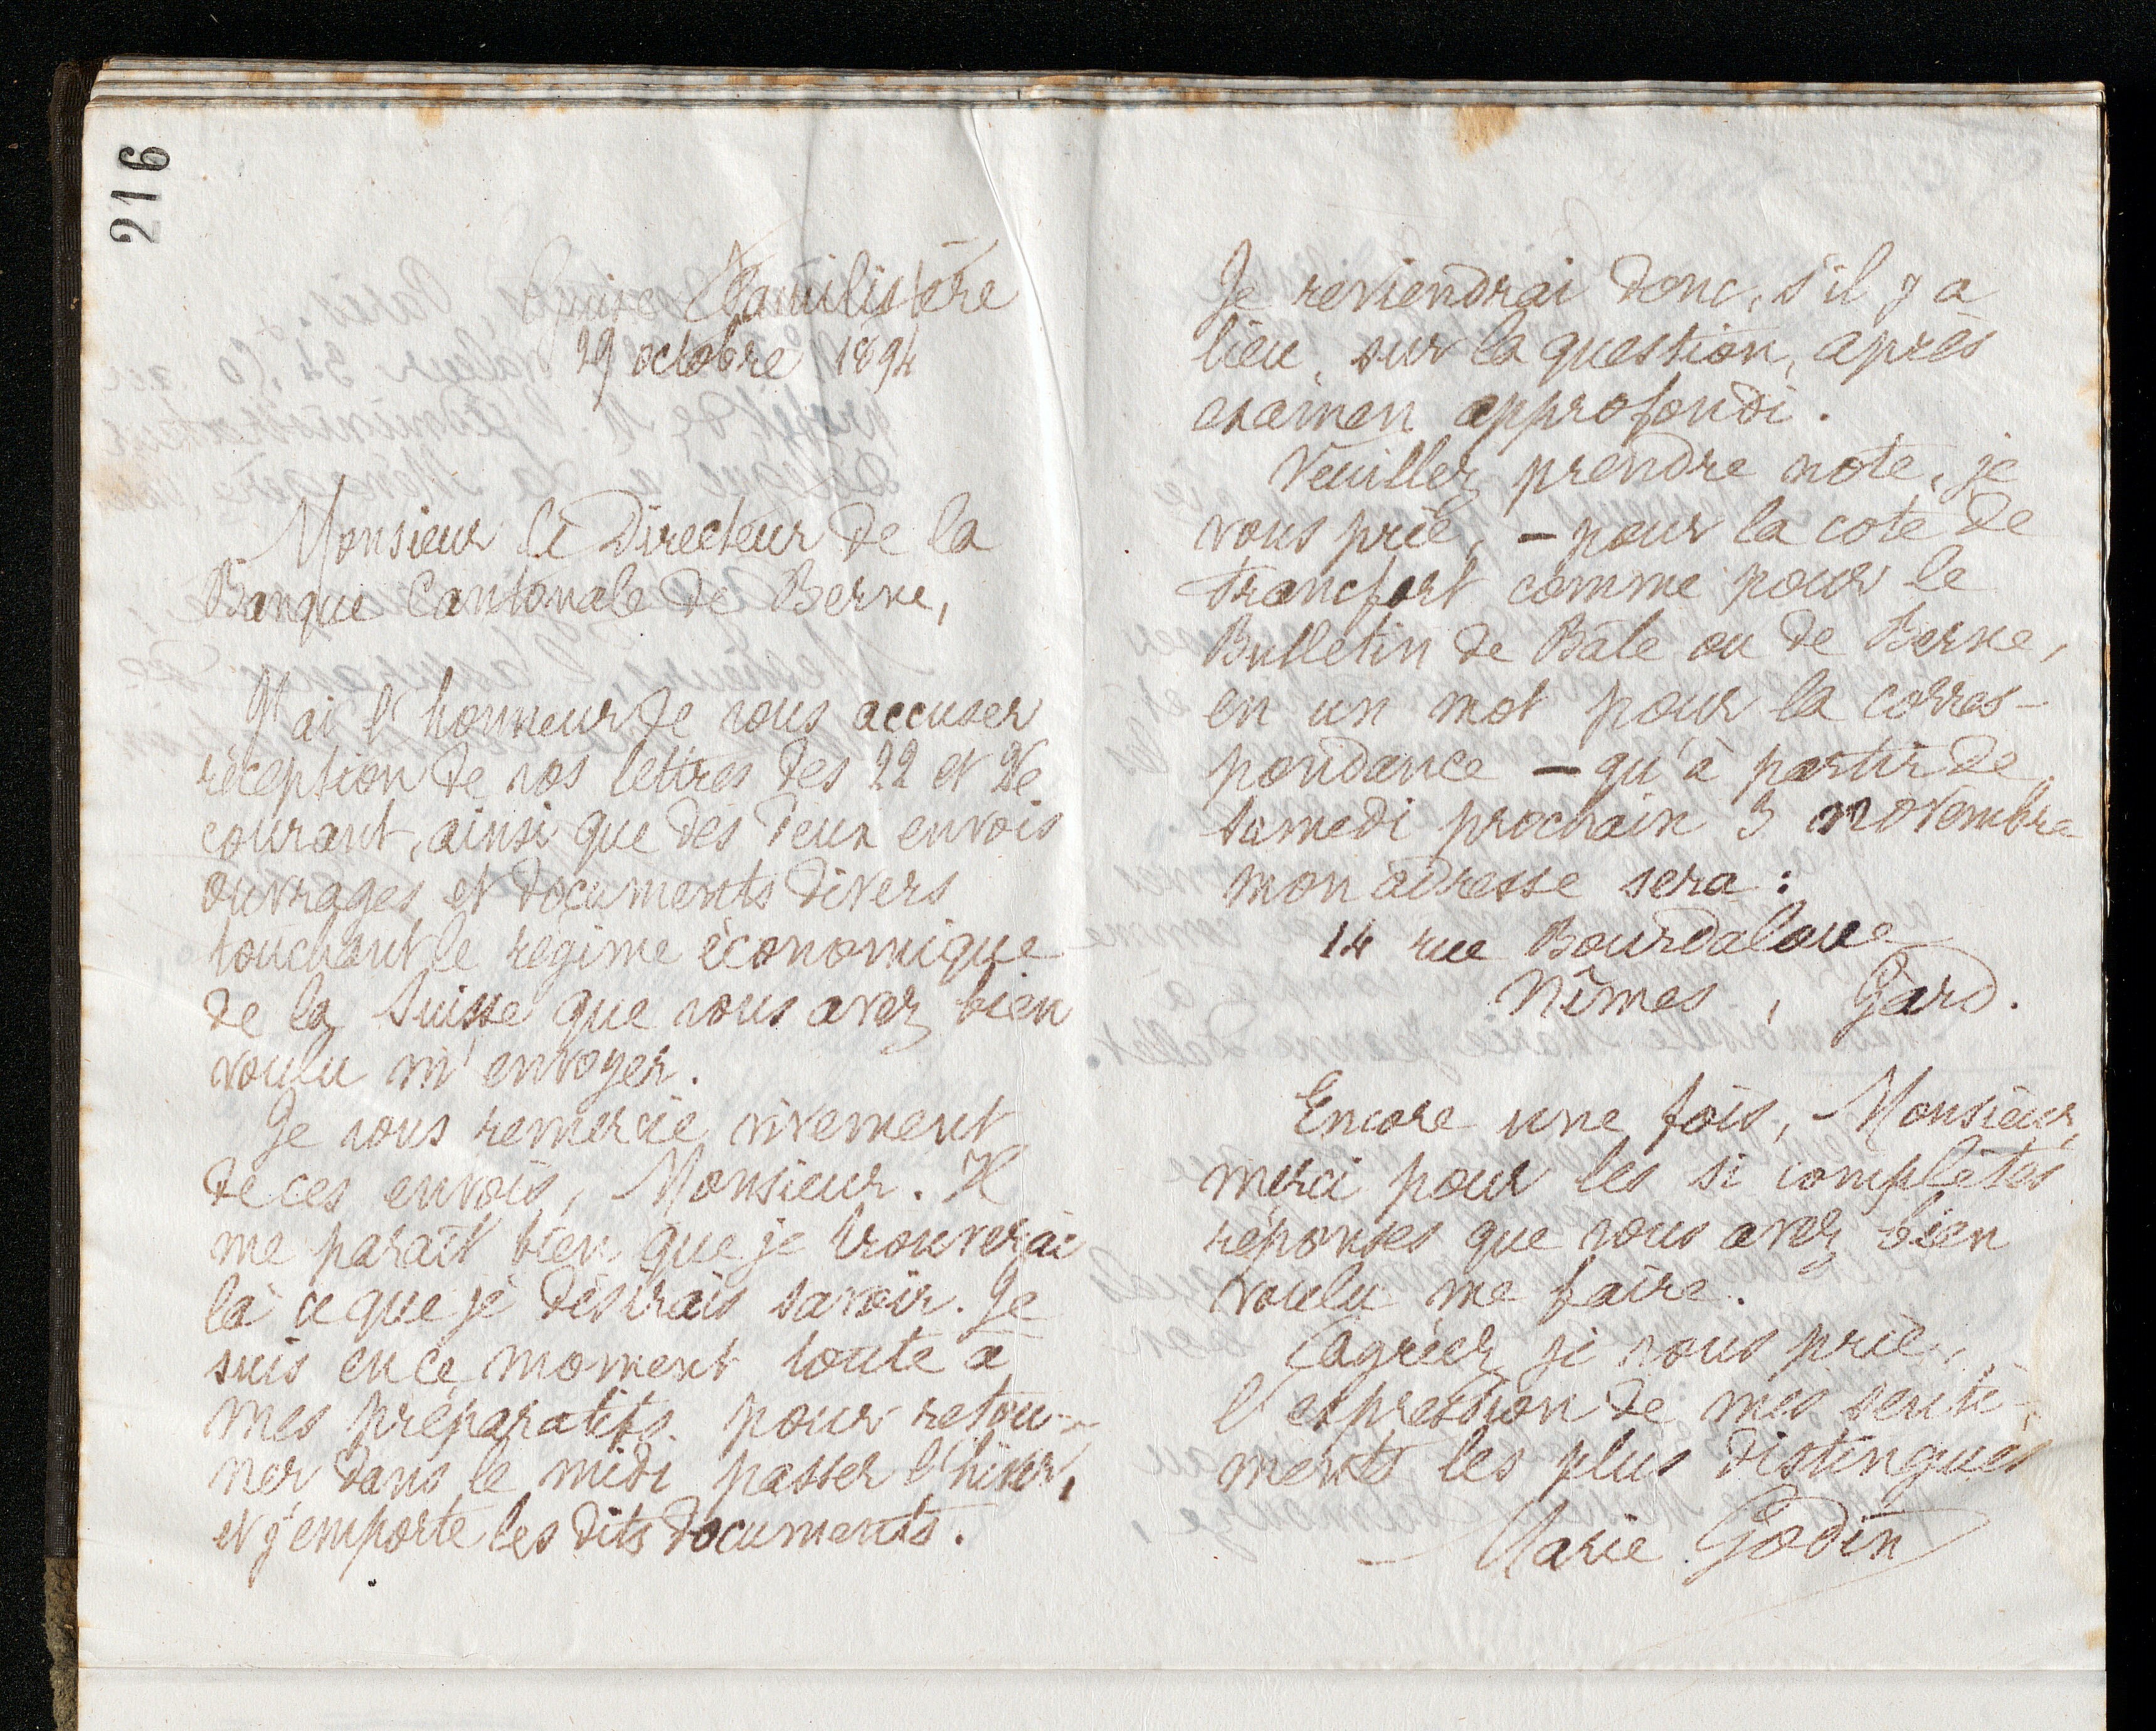 216
Guise Familistère
29 octobre 1894
Monsieur le Directeur de la
Banque Cantonale de Berne,
J'ai l'honneur de vous accuser
réception de vos lettres des 22 et 26
courant, ainsi que des deux envois
ouvrages et documents divers
touchant le régime économique
de la Suisse que vous avez bien
voulu m'envoyer.
Je vous remercie vivement
de ces envois, Monsieur. Il
me paraît bien que je trouverai
là ce que je désirais savoir. Je
suis en ce moment toute à
mes préparatifs pour retour-
ner dans le midi passer l'hiver,
et j'emporte les dits documents.
Je reviendrai donc, s'il y a
lieu, sur la question, après
examen approfondi.
Veuillez prendre note, je
vous prie, - pour la cote de
Francfort comme pour le
Bulletin de Bâle ou de Berne,
en un mot pour la corres-
pondance - qu'à partir de
samedi prochain 3 novembre
mon adresse sera :
14 rue Bourdaloue
Nîmes, Gard.
Encore une fois, Monsieur,
merci pour les si complètes
réponses que vous avez bien
voulu me faire.
Agréez, je vous prie,
l'expression de mes senti-
ments les plus distingués
Marie Godin